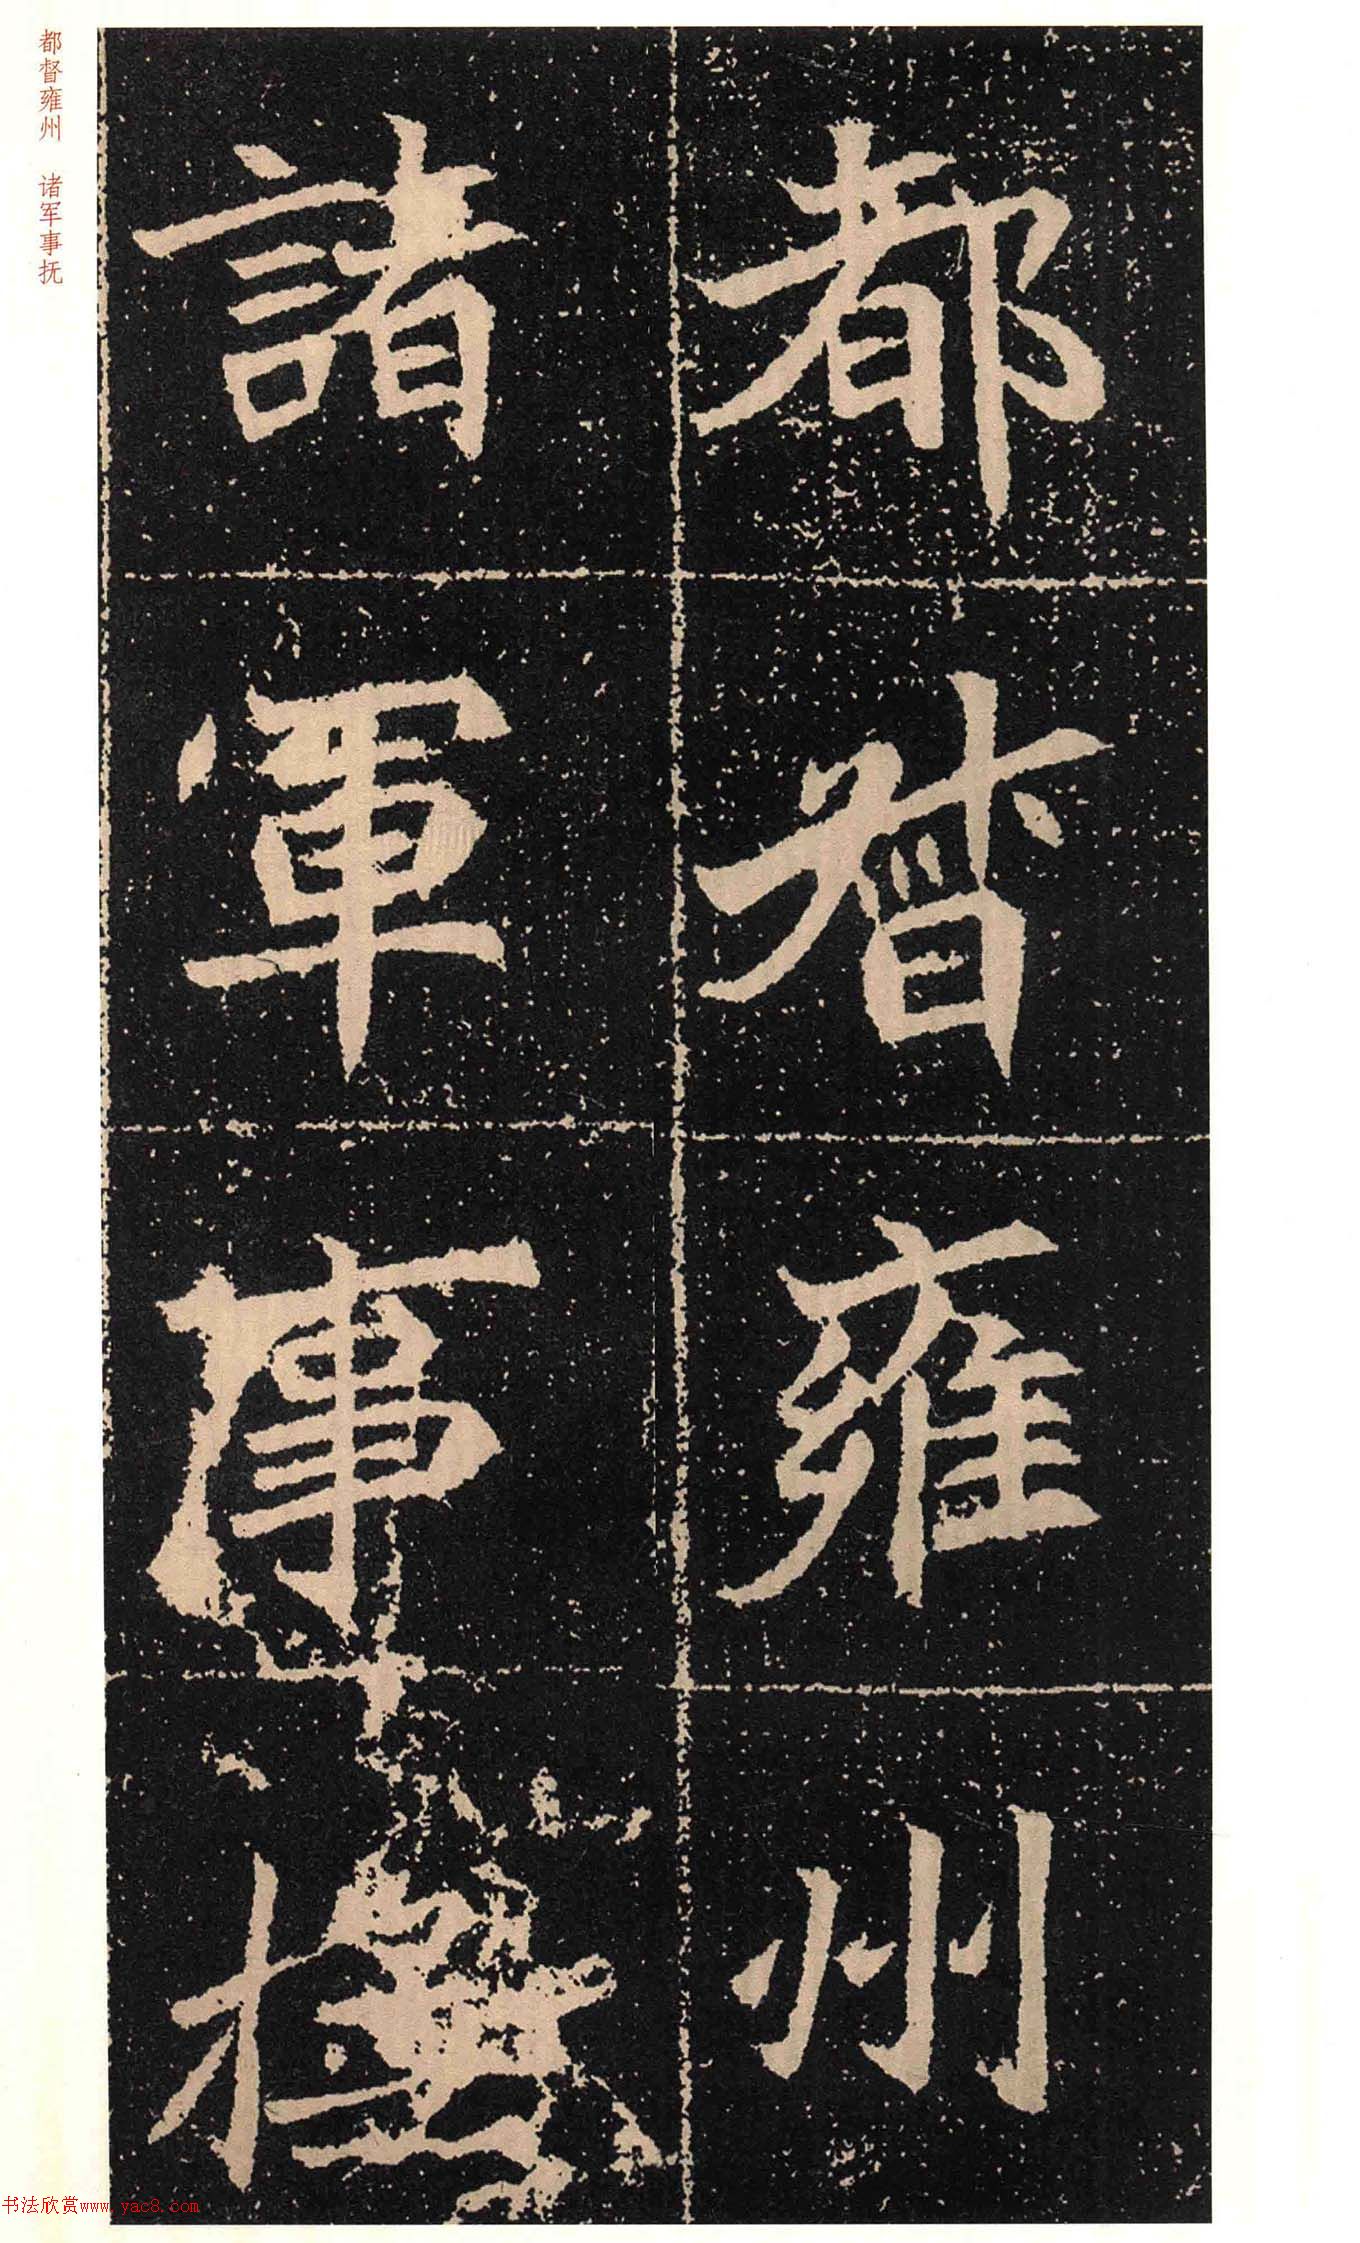 都督雍州
諸軍事撫
都督雍州 诸军事抚
书法欣赏www.yac8.com